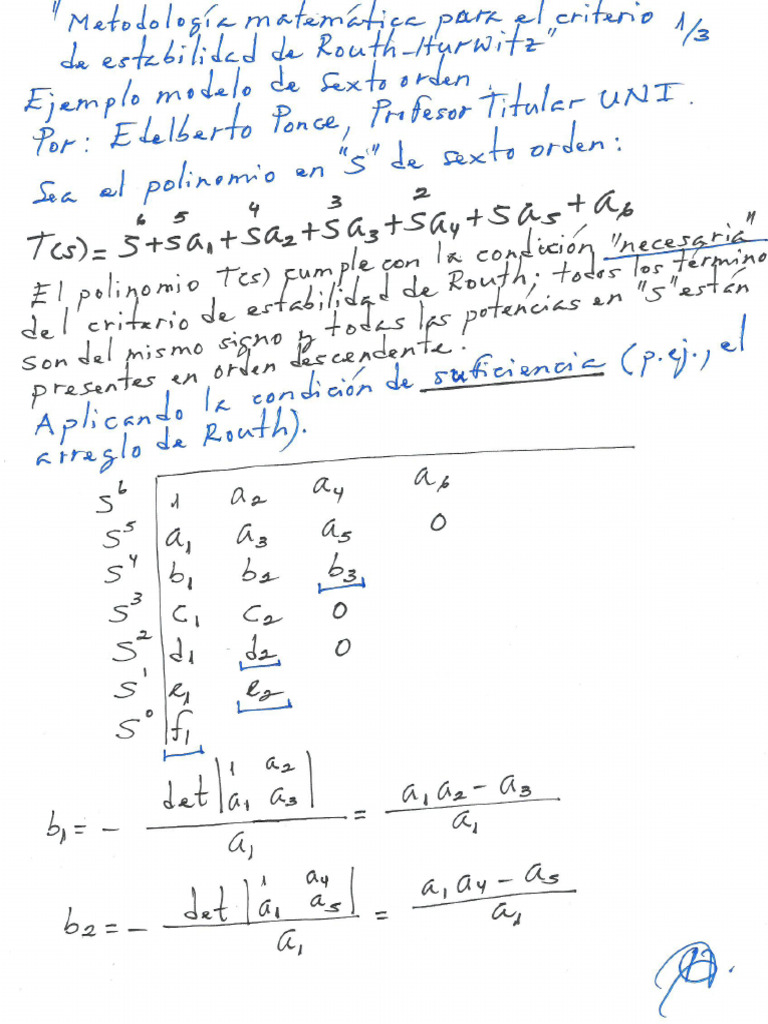 "Metodología matemática para el criterio 1/3
de estabilidad de Routh-Hurwitz"
Ejemplo modelo de sexto orden.
Por: Edelberto Ponce, Profesor Titular UNI.
Sea el polinomio en "S" de sexto orden:
T(s) = S⁶ + S⁵a₁ + S⁴a₂ + S³a₃ + S²a₄ + Sa₅ + a₆
El polinomio T(s) cumple con la condición "necesaria"
del criterio de estabilidad de Routh; todos los término
son del mismo signo y todas las potencias en "S" están
presentes en orden descendente.
Aplicando la condición de suficiencia (p.ej., el
arreglo de Routh).
S⁶ | 1 a₂ a₄ a₆
S⁵ | a₁ a₃ a₅ 0
S⁴ | b₁ b₂ b₃
S³ | c₁ c₂ 0
S² | d₁ d₂ 0
S¹ | e₁ e₂
S⁰ | f₁
b₁ = - det |1 a₂; a₁ a₃| / a₁ = (a₁a₂ - a₃) / a₁
b₂ = - det |1 a₄; a₁ a₅| / a₁ = (a₁a₄ - a₅) / a₁